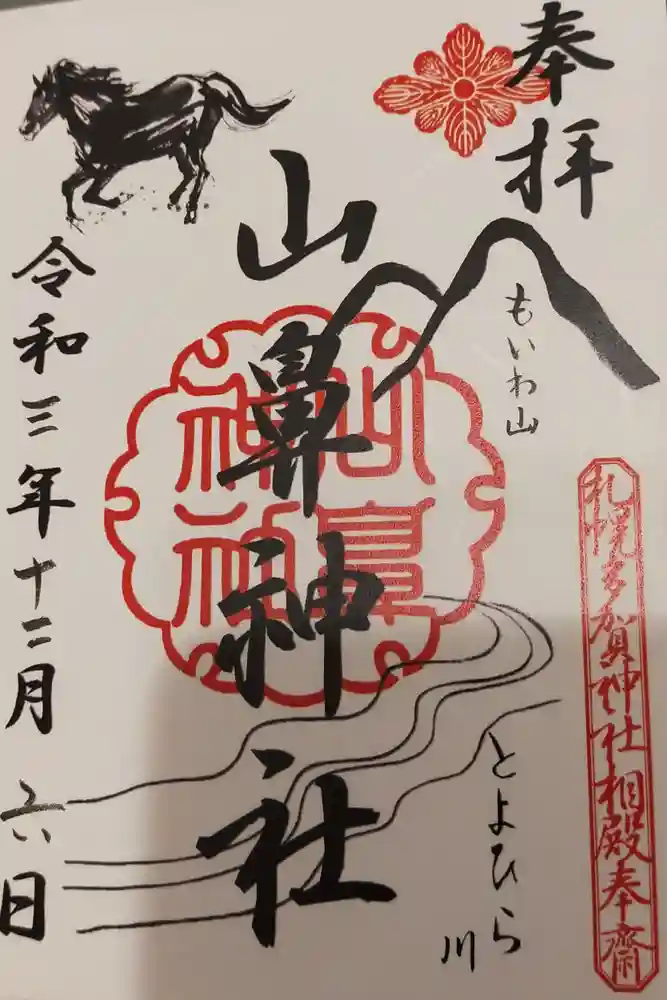 奉拝
もいわ山
札幌多賀神社相殿奉齋
とよひら川
山鼻神社
山鼻
神社
令和三年十二月六日